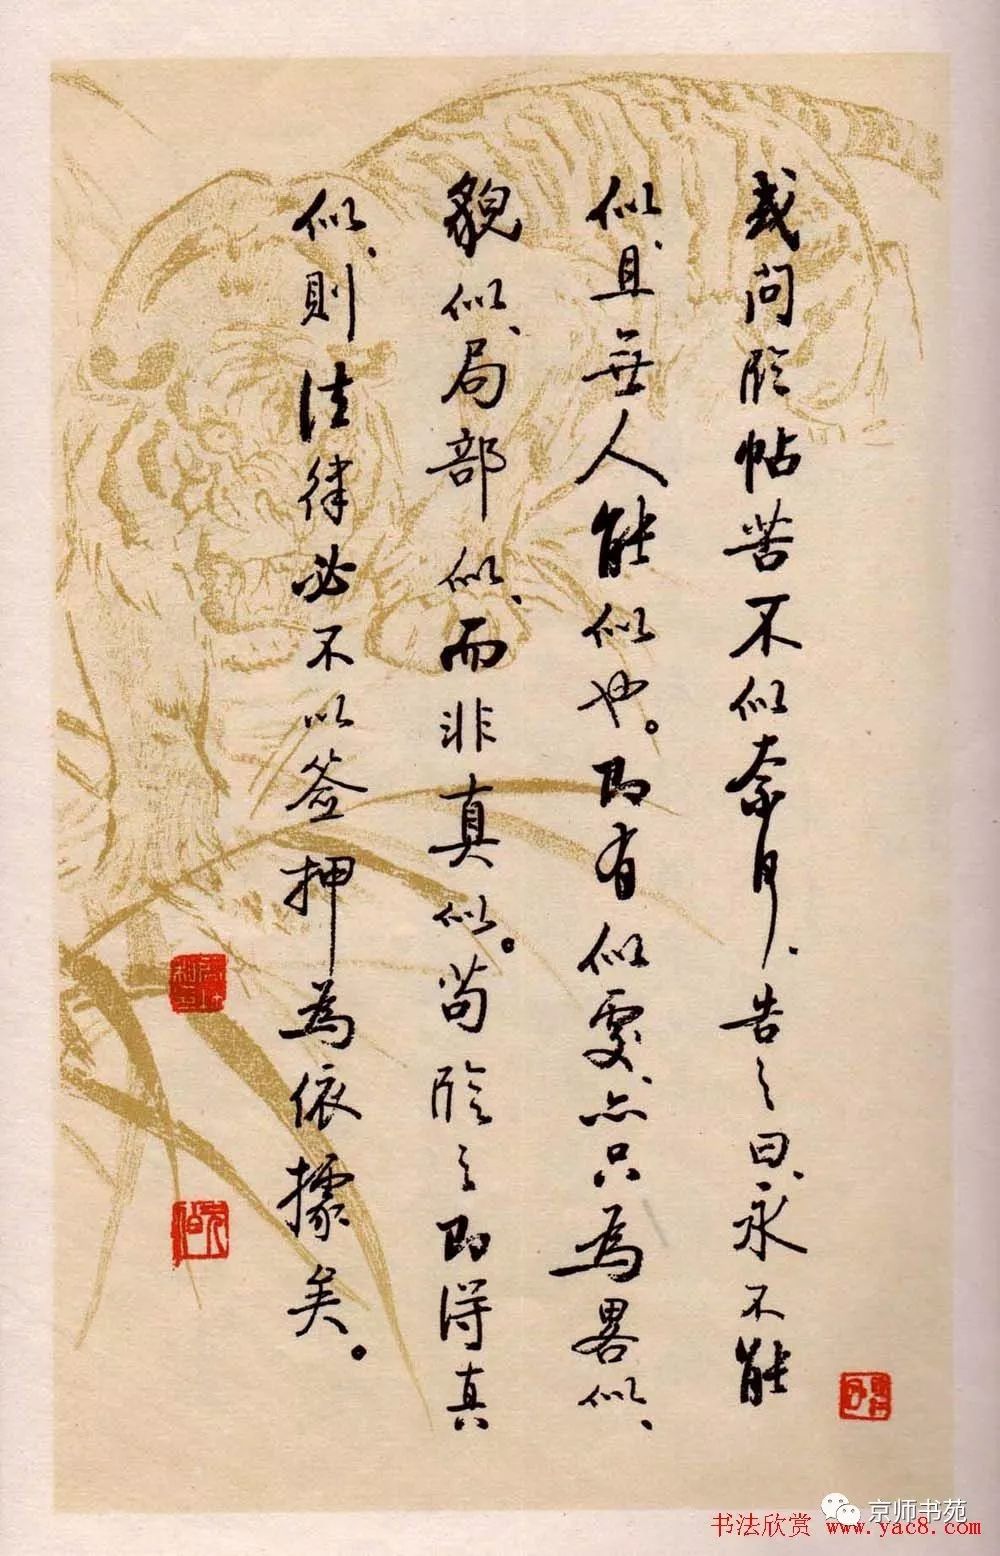 或问临帖苦不似奈何、告之曰、永不能
似、且无人能似也。即有似处、亦只为畧似、
貌似、局部似、而非真似。苟临之即得真
似、则法律必不以签押为依据矣。
京师书苑
书法欣赏 www.yac8.com